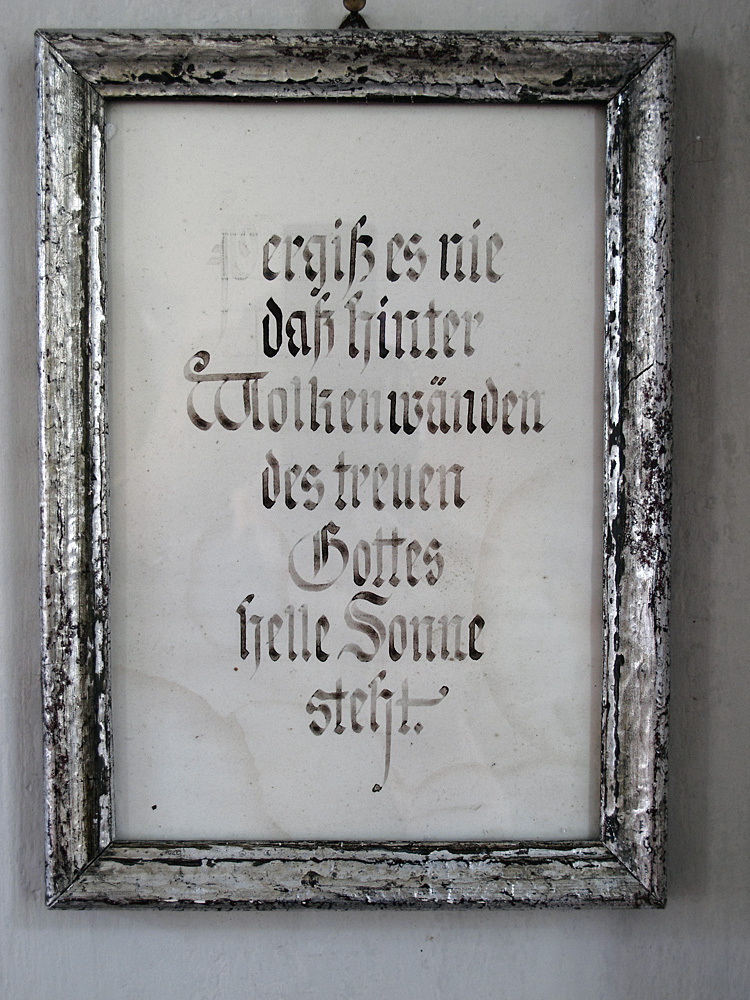 Vergiß es nie
daß hinter
Wolkenwänden
des treuen
Gottes
helle Sonne
steht.